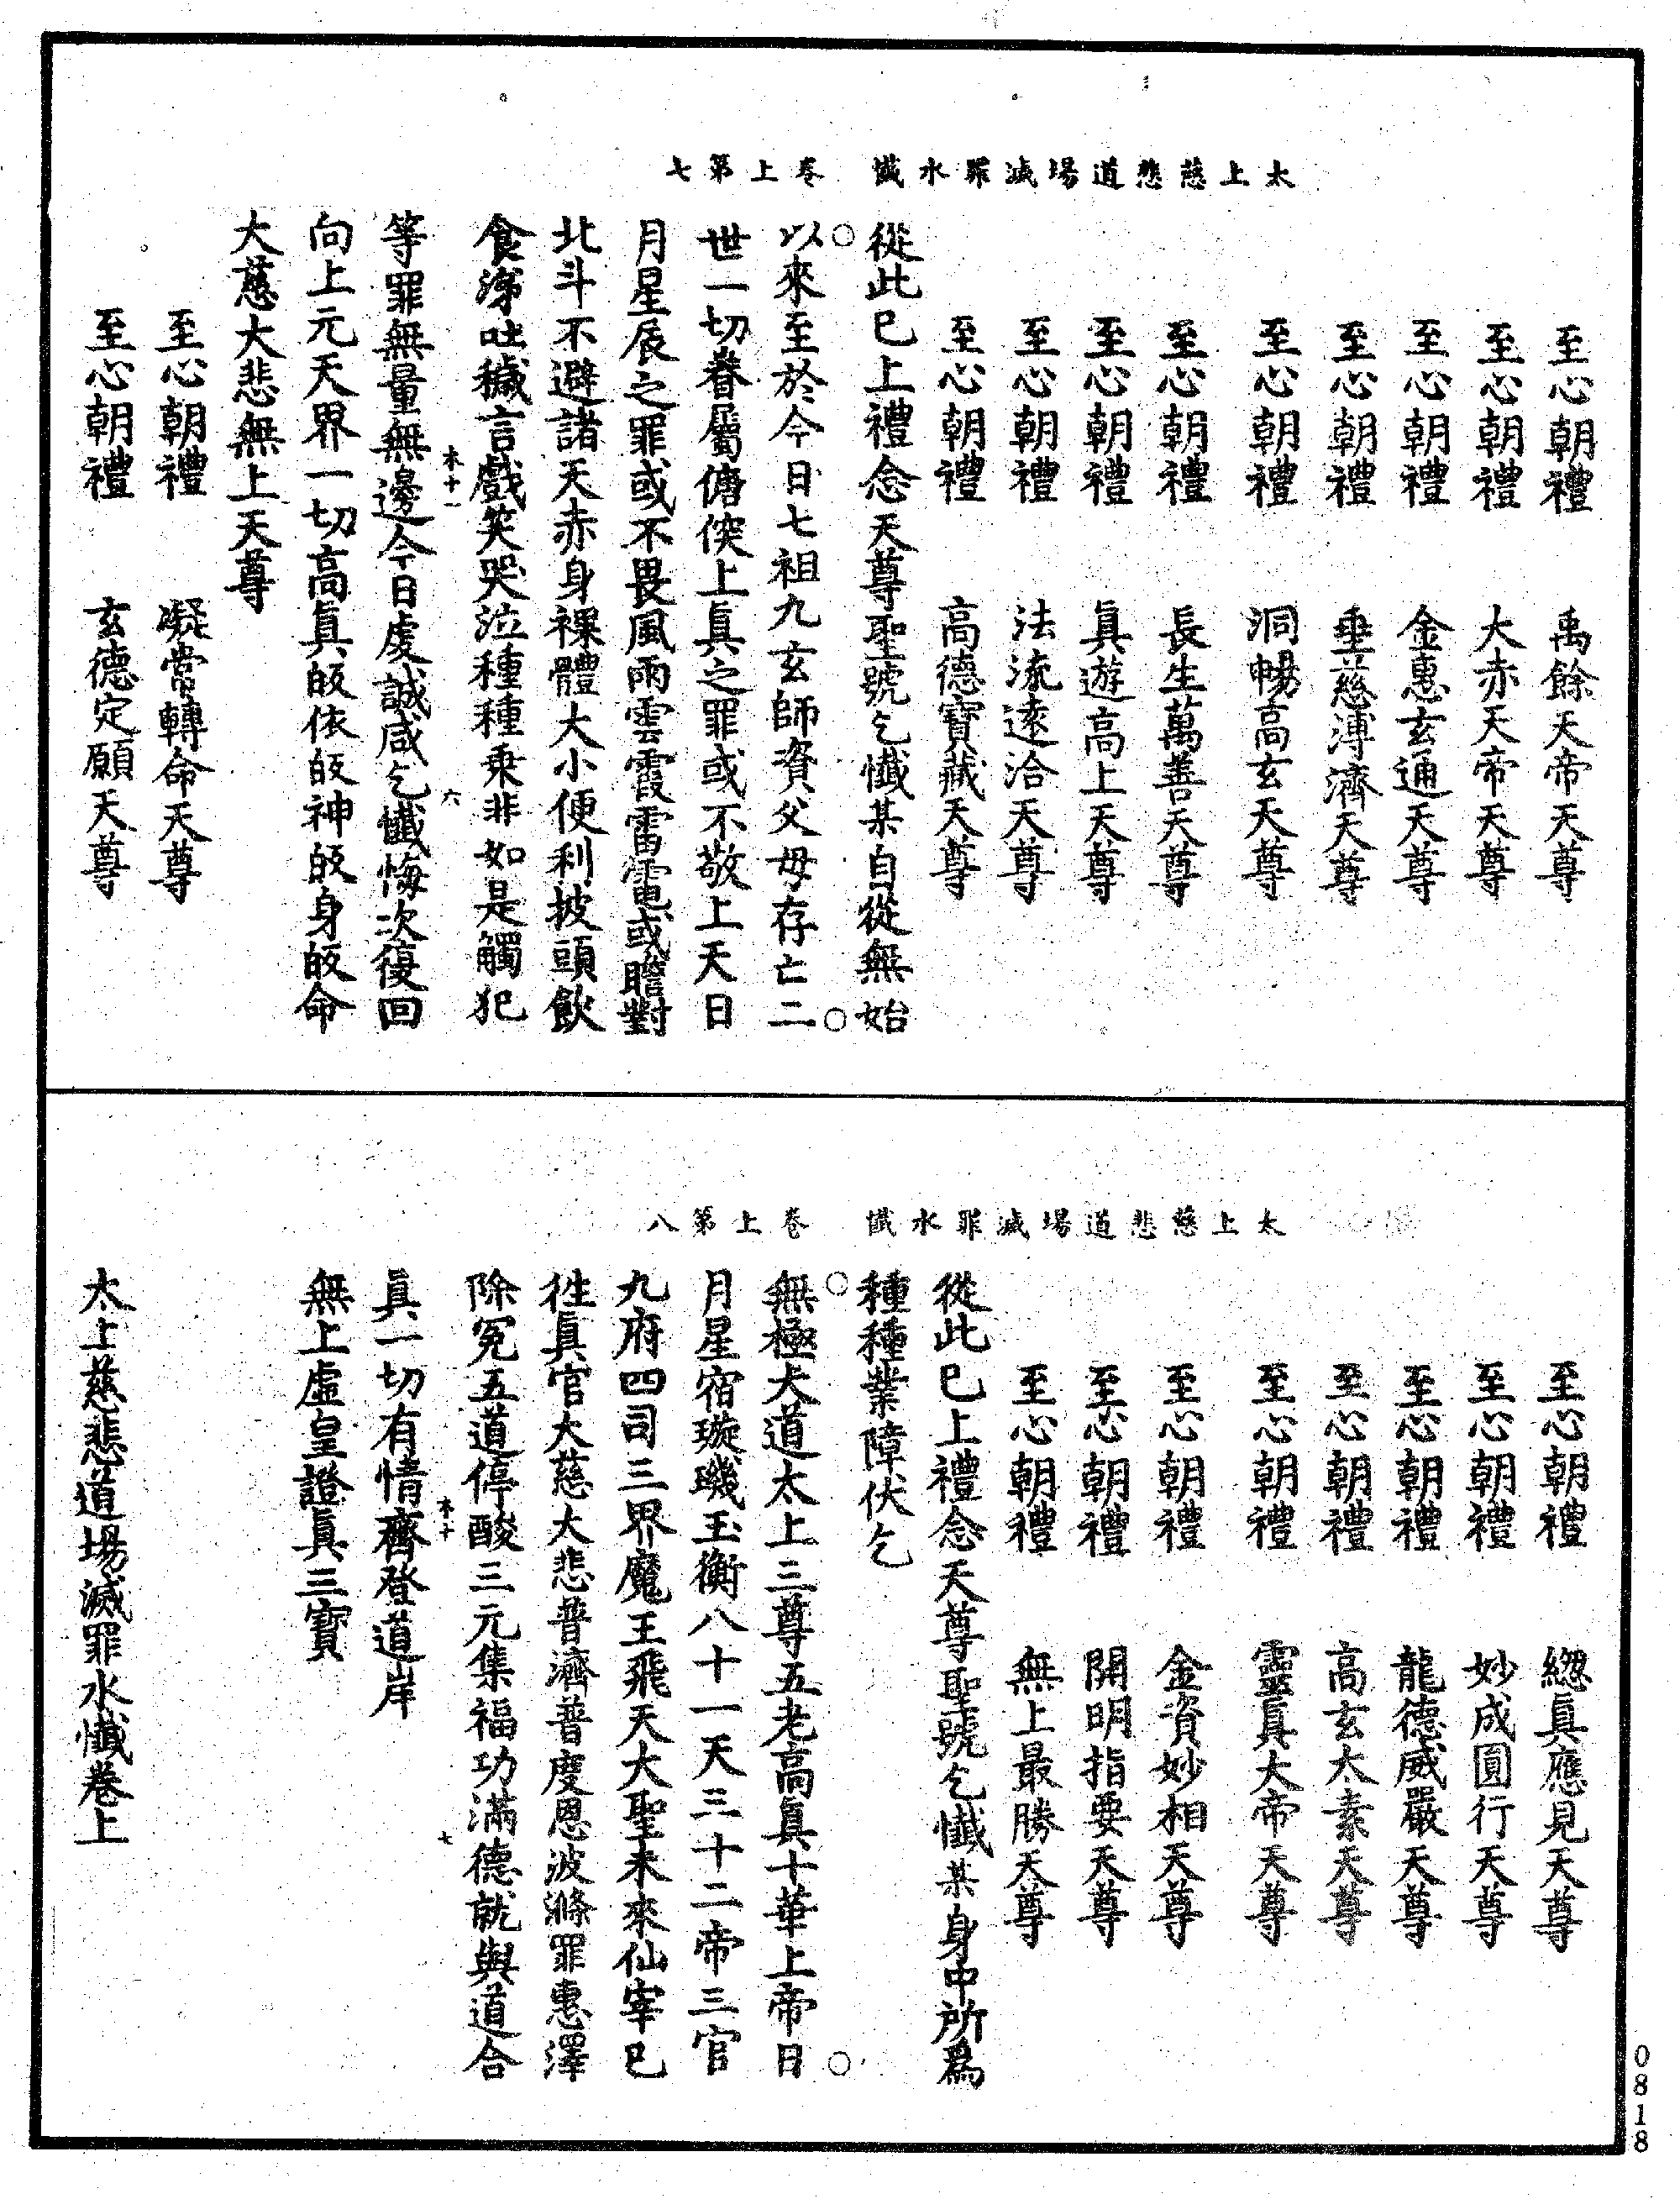 太上慈悲道場滅罪水懺　卷上第七
至心朝禮　禹餘天帝天尊
至心朝禮　大赤天帝天尊
至心朝禮　金惠玄通天尊
至心朝禮　垂慈溥濟天尊
至心朝禮　洞暢高玄天尊
至心朝禮　長生萬善天尊
至心朝禮　眞遊高上天尊
至心朝禮　法流遠洽天尊
至心朝禮　高德寶藏天尊
從此已上禮念天尊聖號乞懺某自從無始
以來至於今日七祖九玄師資父母存亡二
世一切眷屬傏傸上眞之罪或不敬上天日
月星辰之罪或不畏風雨雲霞雷電或瞻對
北斗不避諸天赤身裸體大小便利披頭飲
食涕吐穢言戲笑哭泣種種乗非如是觸犯
本十一　六
等罪無量無邊今日虔誠咸乞懺悔次復回
向上元天界一切高眞皈依皈神皈身皈命
大慈大悲無上天尊
至心朝禮　凝常轉命天尊
至心朝禮　玄德定願天尊
太上慈悲道場滅罪水懺　卷上第八
至心朝禮　緫眞應見天尊
至心朝禮　妙成圓行天尊
至心朝禮　龍德威嚴天尊
至心朝禮　高玄太素天尊
至心朝禮　靈眞大帝天尊
至心朝禮　金資妙相天尊
至心朝禮　開明指要天尊
至心朝禮　無上最勝天尊
從此已上禮念天尊聖號乞懺某身中所爲
種種業障伏乞
無極大道太上三尊五老高眞十華上帝日
月星宿璇璣玉衡八十一天三十二帝三官
九府四司三界魔王飛天大聖未來仙宰已
徃眞官大慈大悲普濟普度恩波滌罪惠澤
除冤五道停酸三元集福功滿德就與道合
本十　七
眞一切有情齊登道岸
無上虛皇證眞三寶
太上慈悲道場滅罪水懺卷上
0818